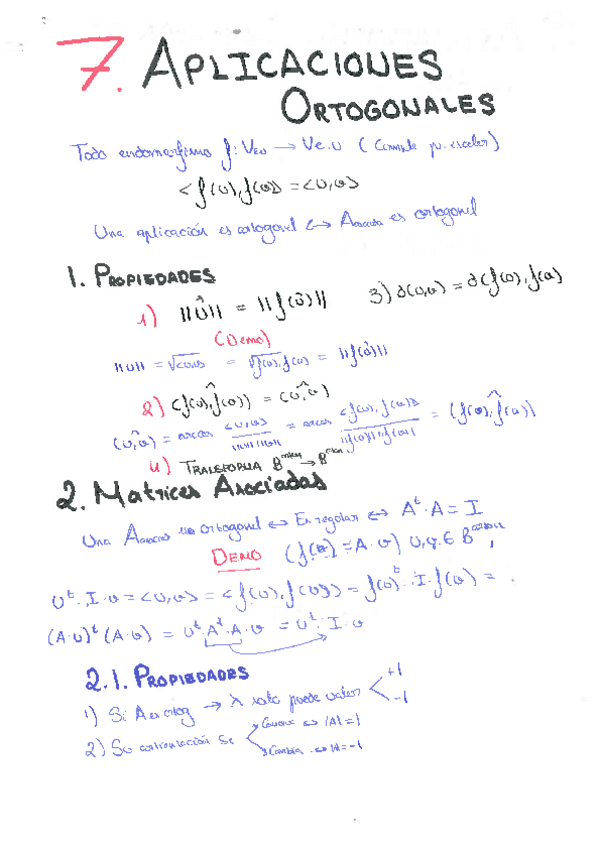 7. APLICACIONES
ORTOGONALES
Todo endomorfismo f: Veu → Ve.u (Cumple pr. escalar)
<f(u), f(v)> = <u,v>
Una aplicación es ortogonal ↔ Aasociada es ortogonal
1. PROPIEDADES
1) ||u|| = ||f(u)|| 3) d(u,v) = d(f(u), f(v))
(Demo)
||u|| = √<u,u> = √f(u), f(u) = ||f(u)||
2) (f(u), f(v)) = (u,v)
(u,v) = arcos <u,v> / ||u|| ||v|| = arcos <f(u), f(v)> / ||f(u)|| ||f(v)|| = (f(u), f(v))
4) TRANSFORMA B → B
2. Matrices Asociadas
Una Aasoc es ortogonal ↔ Es regular ↔ Aᵗ·A = I
DEMO (f(v) = A·v) u,v ∈ B
uᵗ·I·v = <u,v> = <f(u), f(v)> = f(u)ᵗ·I·f(v) =
(A·u)ᵗ(A·v) = uᵗ·Aᵗ·A·v = uᵗ·I·v
2.1. PROPIEDADES
1) Si A es ortog → λ solo puede valer +1 -1
2) Su orientación se Conserve ↔ |A|=1
Cambia ↔ |A|=-1